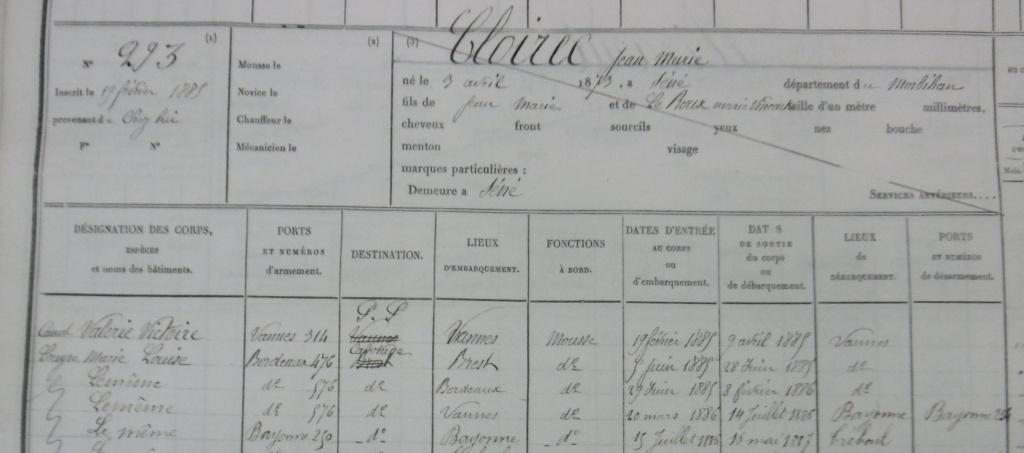 (1) (2) (3) Cloirec Jean Marie
N° 293 Mousse le né le 3 avril 1873, a Séné département du Morbihan
Inscrit le 19 février 1885 Novice le fils de Jean Marie et de Le Roux Marie taille d'un mètre millimètres,
provenant de Chez lui Chauffeur le cheveux front sourcils yeux nez bouche
F° N° Mécanicien le menton visage
marques particulières :
Demeure a Séné SERVICES ANTÉRIEURS....
DÉSIGNATION DES CORPS, ESPÈCES et noms des bâtiments. PORTS ET NUMÉROS d'armement. DESTINATION. LIEUX D'EMBARQUEMENT. FONCTIONS À BORD. DATES D'ENTRÉE AU CORPS ou d'embarquement. DAT S DE SORTIE du corps ou de débarquement. LIEUX de DÉBARQUEMENT. PORTS ET NUMÉROS de désarmement.
P. P
Canot Valérie Victoire Vannes 314 Vannes Vannes Mousse 19 février 1885 9 avril 1885 Vannes
Cabotage
Marie Louise Bordeaux 476 Brest Brest d° 5 juin 1885 28 Juin 1885 d°
Lemême d° 576 d° Bordeaux 29 Juin 1885 8 février 1886 d°
Lemême d° 576 Vannes d° 20 mars 1886 14 Juillet 1886 Bayonne Bayonne
Le même Bayonne 250 d° Bayonne d° 15 Juillet 1886 16 mai 1887 tréboul